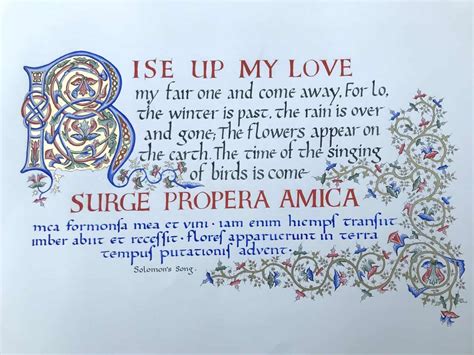 RISE UP MY LOVE
my fair one and come away. For lo,
the winter is past, the rain is over
and gone; The flowers appear on
the earth. The time of the singing
of birds is come
SURGE PROPERA AMICA
mea formonsa mea et vini · iam enim hiemps transiit
imber abiit et recessit · flores apparucrunt in terra
tempus putationis advenit.
Solomon's Song.